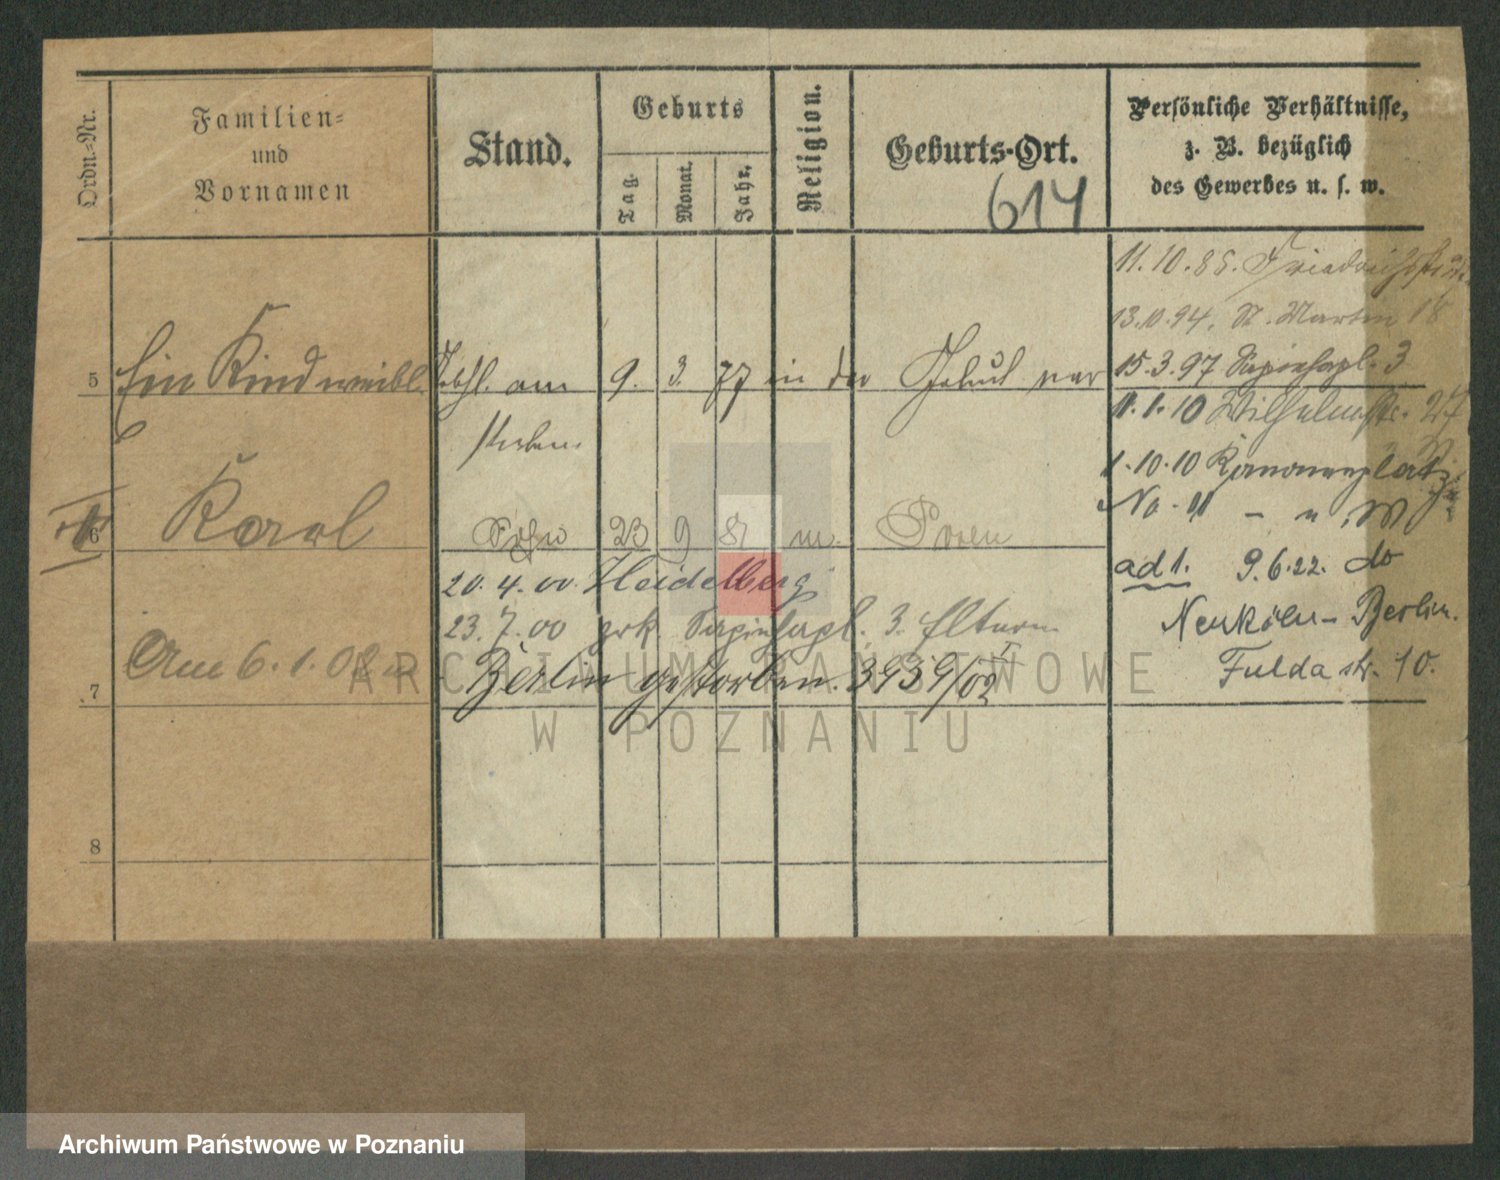 Ordn.-Nr.
Familien-
und
Vornamen
Stand.
Geburts
Tag.
Monat.
Jahr.
Religion.
Geburts-Ort.
614
Persönliche Verhältnisse,
z. B. bezüglich
des Gewerbes u. s. w.
11.10.85.
13.10.94. St. Martin 18
5 Ein Kind weibl. am 9. 3. 77 in der Geburt ver
storben.
15.3.97 Sapiehapl. 3
11.1.10 Wilhelmstr. 27
1.10.10 Kanonenplatz
No. 11
6 Karl Sohn 23 9 m. Posen
20.4.00. Heidelberg
ad 1. 9.6.22. do
Neukölln-Berlin.
Fulda str. 10.
23.7.00 zrk. Sapiehapl. 3. Eltern
7 Am 6.1.02 in Berlin gestorben. 3939/02 I
8
ARCHIWUM PAŃSTWOWE
W POZNANIU
Archiwum Państwowe w Poznaniu